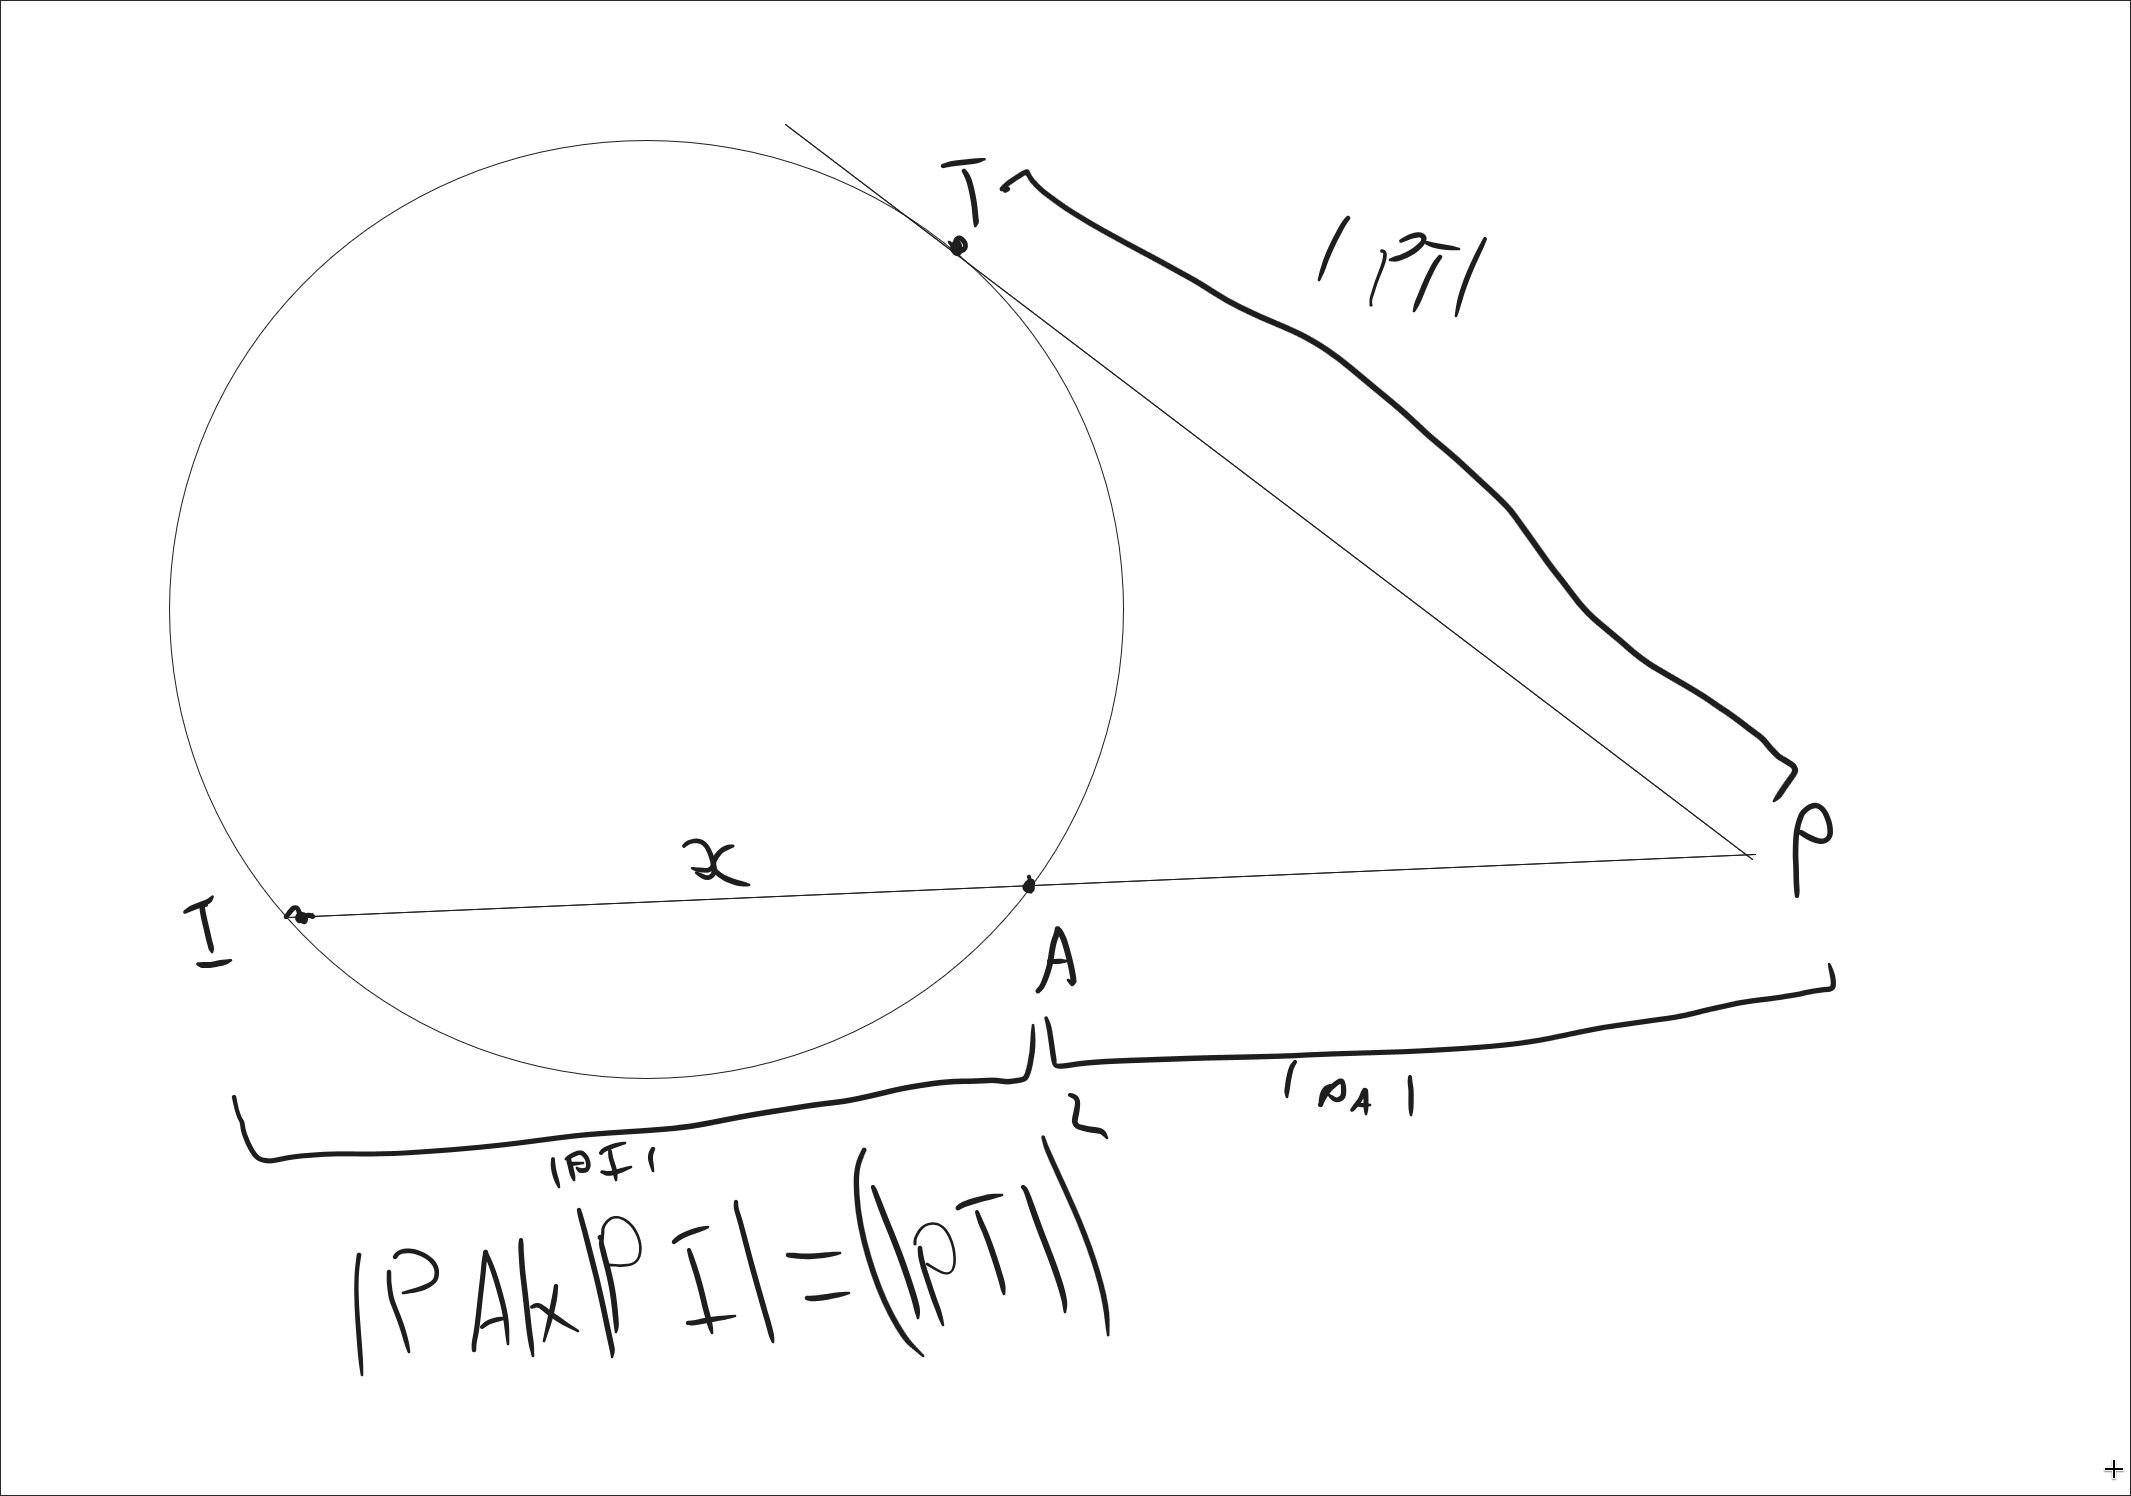 T
|PT|
P
x
I
A
|PA|
|PI|
|PA|x|PI|=(|PT|)²